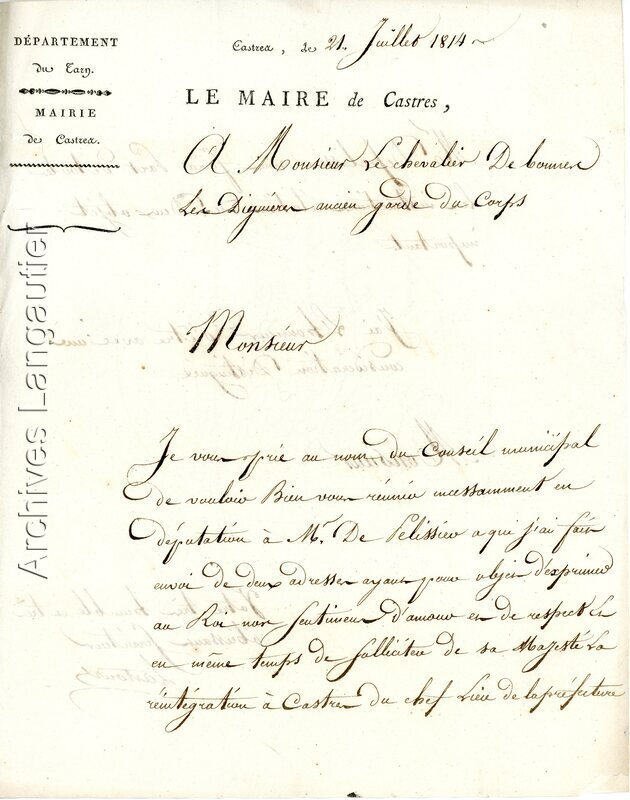 DÉPARTEMENT
du Tarn.
MAIRIE
de Castres.
Castres, le 21. Juillet 1814
LE MAIRE de Castres,
A Monsieur Le chevalier De bonnes
Les Diguières ancien garde du Corps
Monsieur
Je vous prie au nom du Conseil municipal
de vouloir Bien vous réunir incessamment en
députation à Mr. De Pelissier a qui j'ai fait
envoi de deux adresses ayant pour objet d'exprimer
au Roi nos sentimens d'amour et de respect et
en même temps de solliciter de sa Majesté La
réintégration à Castres du chef Lieu de la préfecture
Archives Langautier